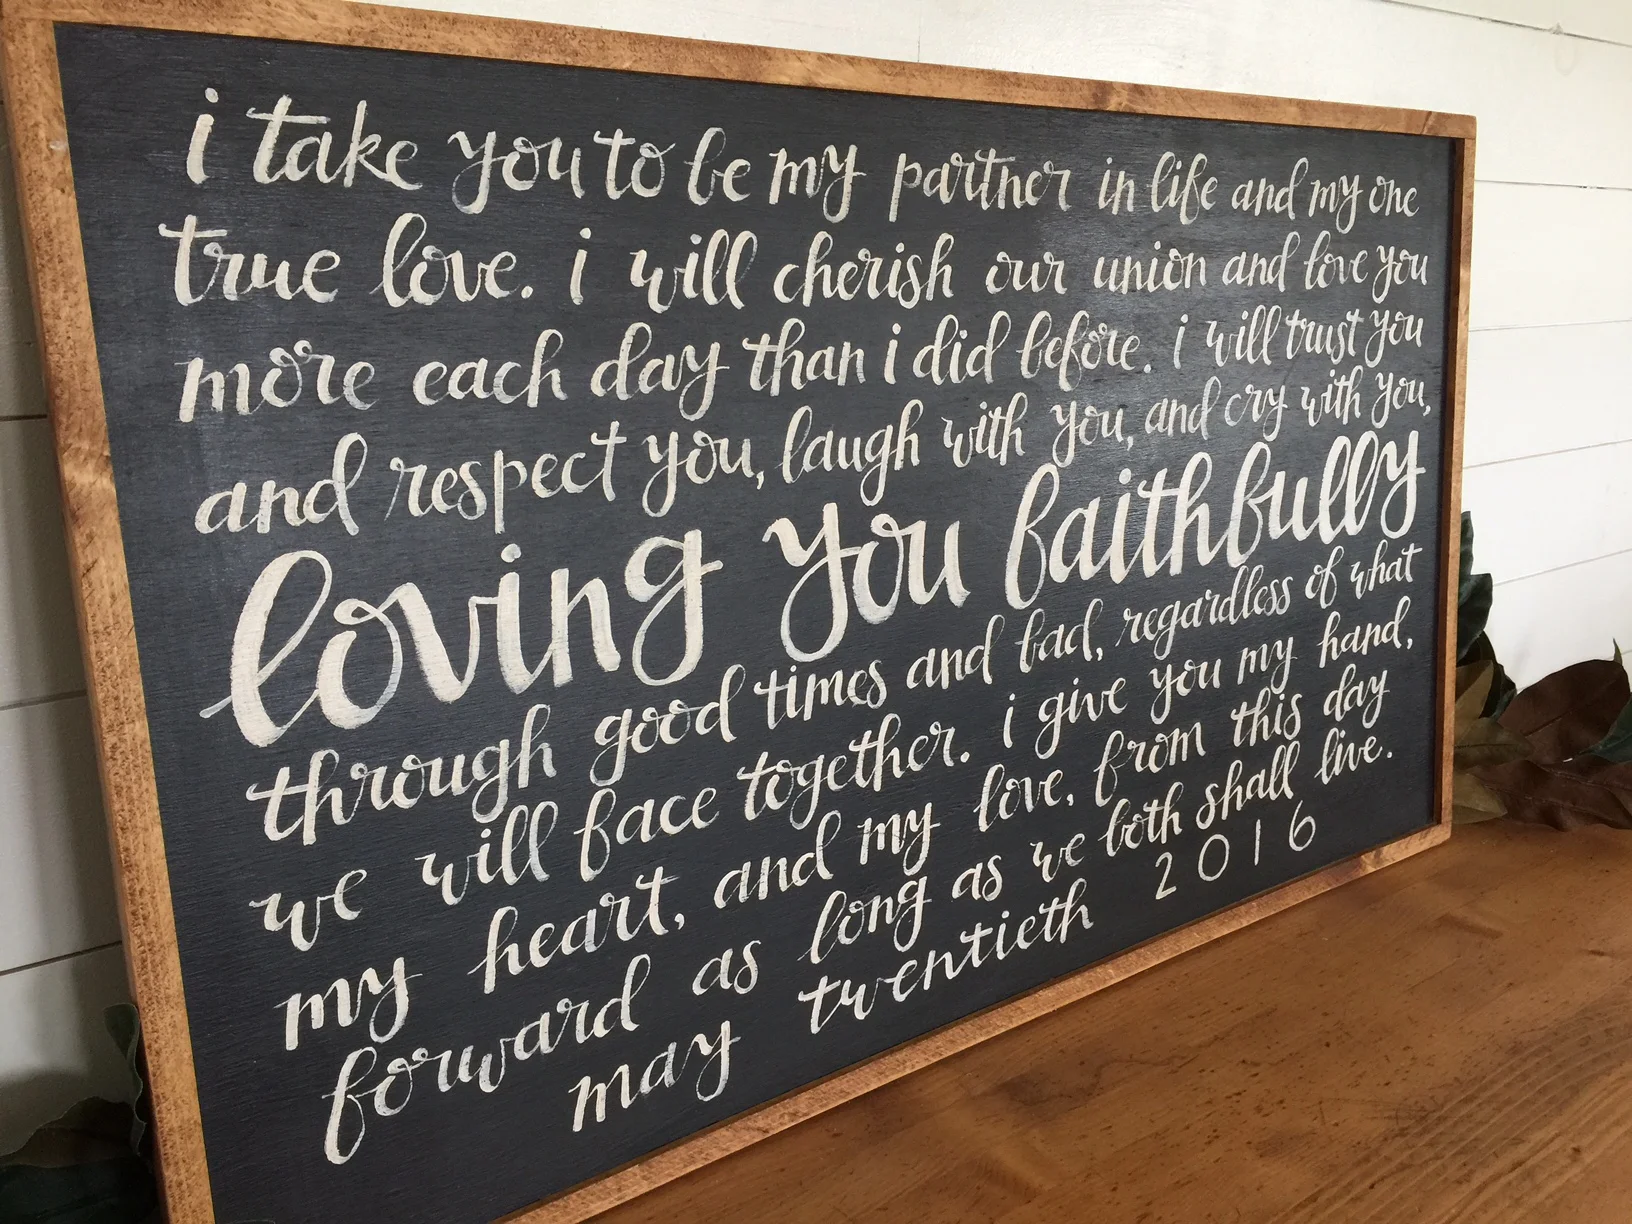 i take you to be my partner in life and my one
true love. i will cherish our union and love you
more each day than i did before. i will trust you
and respect you, laugh with you, and cry with you,
loving you faithfully
through good times and bad, regardless of what
we will face together. i give you my hand,
my heart, and my love, from this day
forward as long as we both shall live.
may twentieth 2016